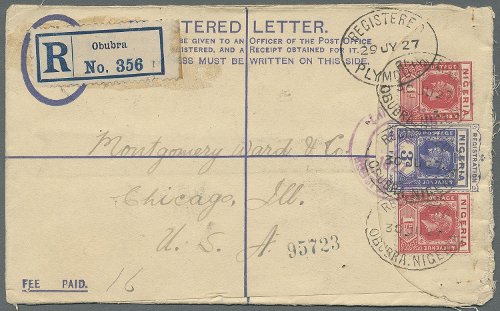 TERED LETTER.
BE GIVEN TO AN OFFICER OF THE POST OFFICE
ISTERED, AND A RECEIPT OBTAINED FOR IT.
SS MUST BE WRITTEN ON THIS SIDE.
R
Obubra
No. 356
REGISTERED
29 JY 27
PLYMOUTH
OBUBRA, NIGERIA
NIGERIA
REGISTRATION
3d
NIGERIA
NIGERIA
OBUBRA, NIGE
Montgomery Ward & Co.
Chicago, Ill.
U. S. A
95723
FEE PAID.
16